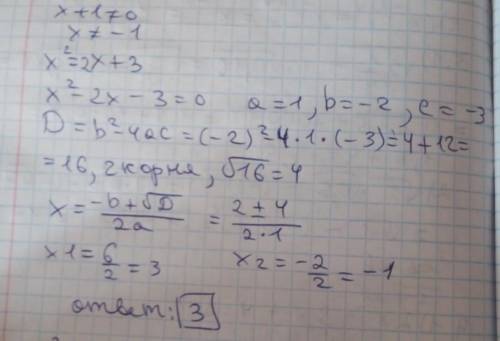 x+1≠0
x≠-1
x²=2x+3
x²-2x-3=0 a=1, b=-2, c=-3
D=b²-4ac=(-2)²-4·1·(-3)=4+12=
=16, 2 корня, √16=4
x=(-b+√D)/2a = (2±4)/(2·1)
x1=6/2=3 x2=-2/2=-1
ответ: 3